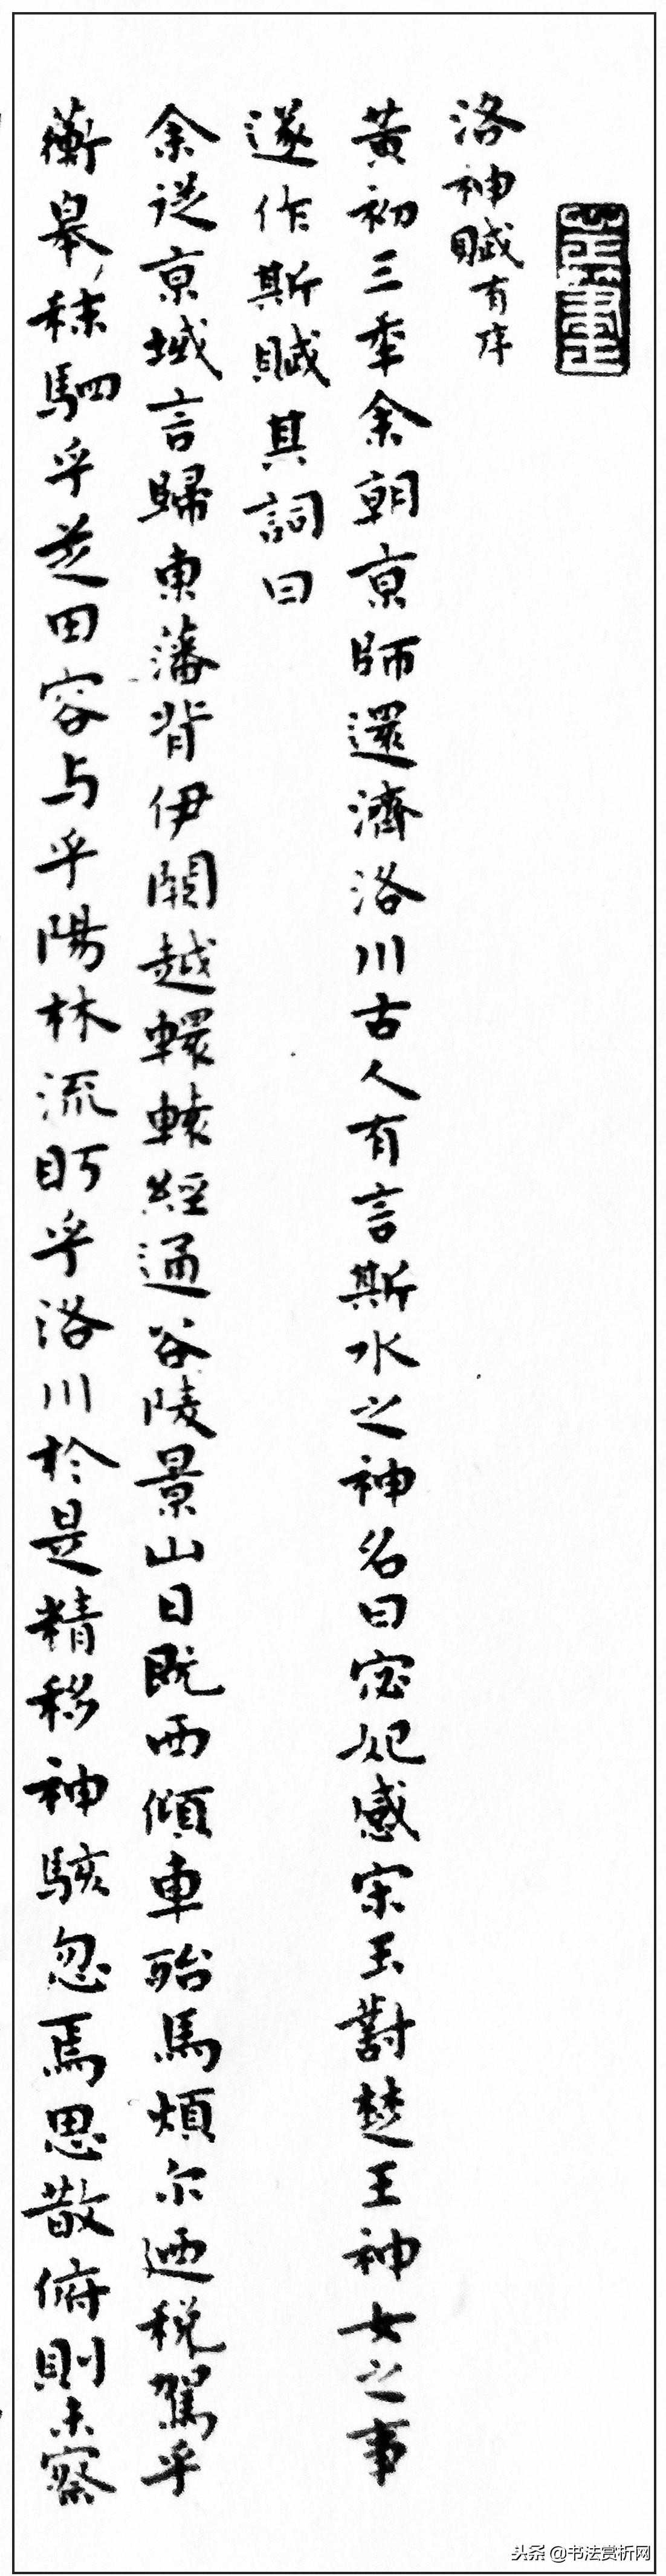 洛神賦有序
黃初三年余朝京師還濟洛川古人有言斯水之神名曰宓妃感宋玉對楚王神女之事
遂作斯賦其詞曰
余從京域言歸東藩背伊闕越轘轅經通谷陵景山日既西傾車殆馬煩尔迺稅駕乎
蘅皋秣駟乎芝田容与乎陽林流眄乎洛川於是精移神駭忽焉思散俯則未察
头条 @书法赏析网